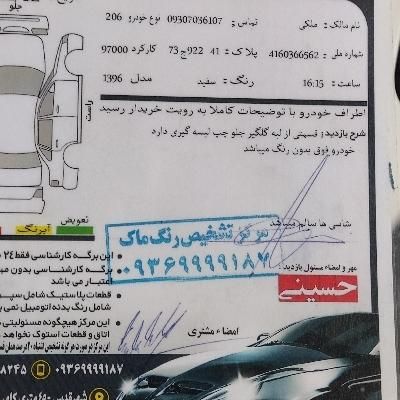 جلو
نام مالک : ملکی تماس : 09307036107 نوع خودرو 206
شماره ملی : 4160366562 پلاک : 41 922ج73 کارکرد 97000
ساعت : 16:15 رنگ : سفید مدل 1396
راست
اطراف خودرو با توضیحات کاملا به رویت خریدار رسید
شرح بازدید: قسمتی از لبه گلگیر جلو چپ لیسه گیری دارد
خودرو فوق بدون رنگ میباشد
شاسی ها سالم میباشد
تعویض آبرنگ
مرکز تشخیص رنگ ماک
۰۹۳۶۹۹۹۹۱۸۷
مهر و امضاء مسئول بازدید :
حسینی
این برگه کارشناسی فقط ۲۴
برگه کارشناسی بدون مهر
اعتبار می باشد
قطعات پلاستیک شامل سپر
شامل رنگ بدنه اتومبیل نمی
این مرکز هیچگونه مسئولیتی
اتاق و قطعات استوک نخواهد
امضاء مشتری
۰۹۳۶۹۹۹۹۱۸۷
۸۲۴۵